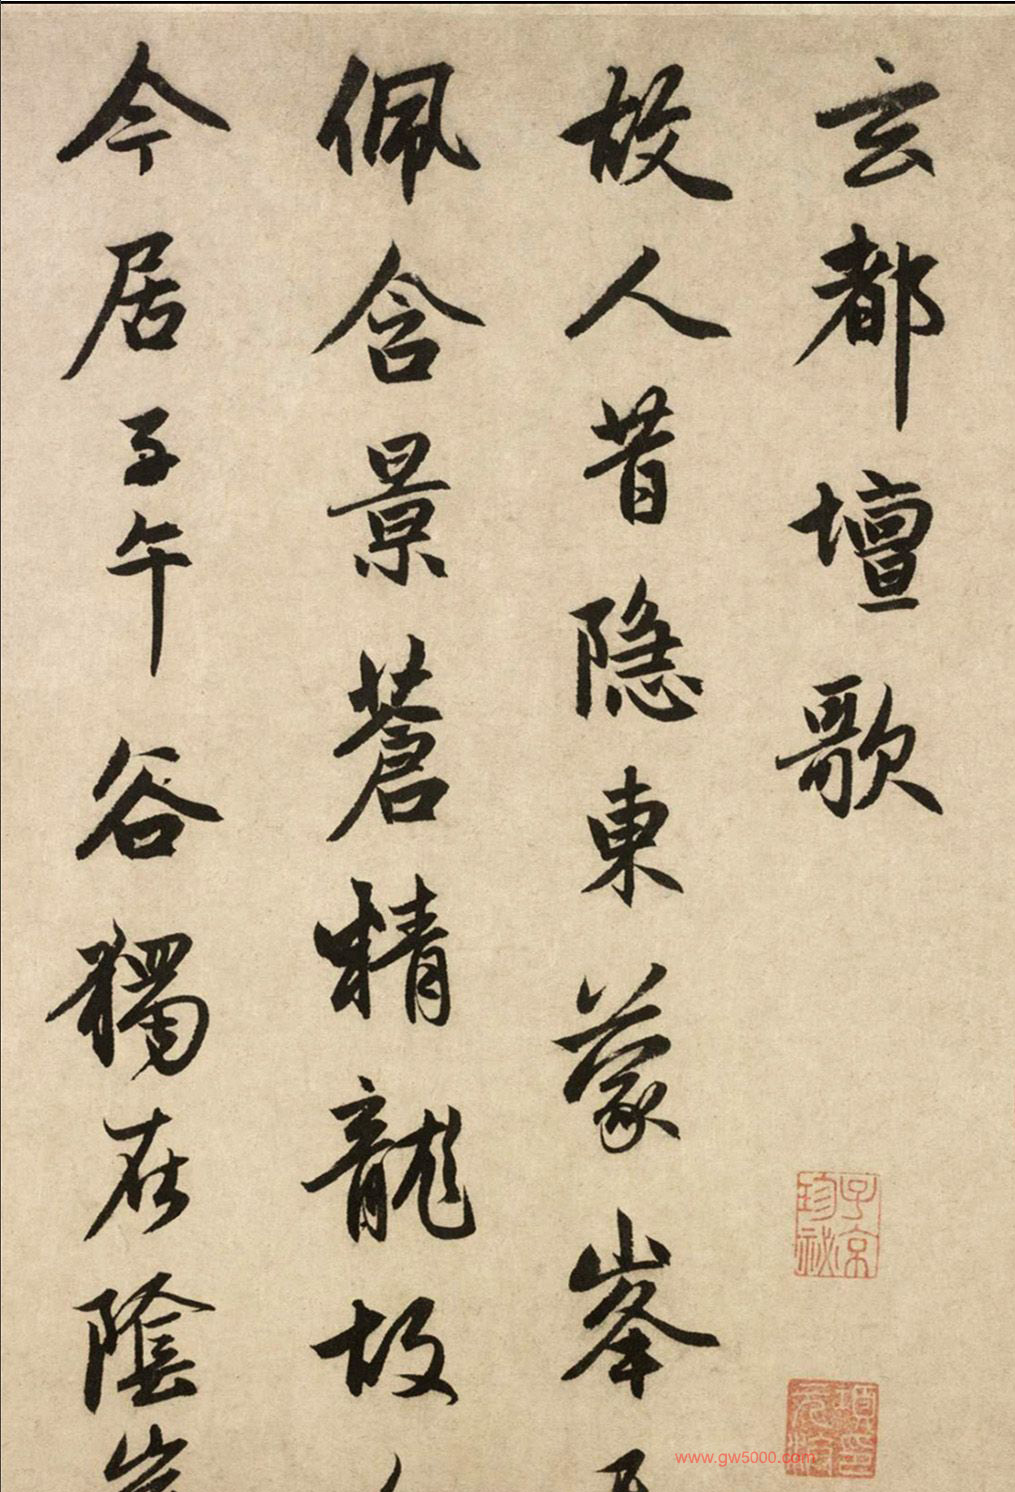 玄都壇歌
故人昔隐東蒙峯
佩含景蒼精龍故
今居子午谷獨在陰崖
子京珍祕
項元汴印
www.gw5000.com